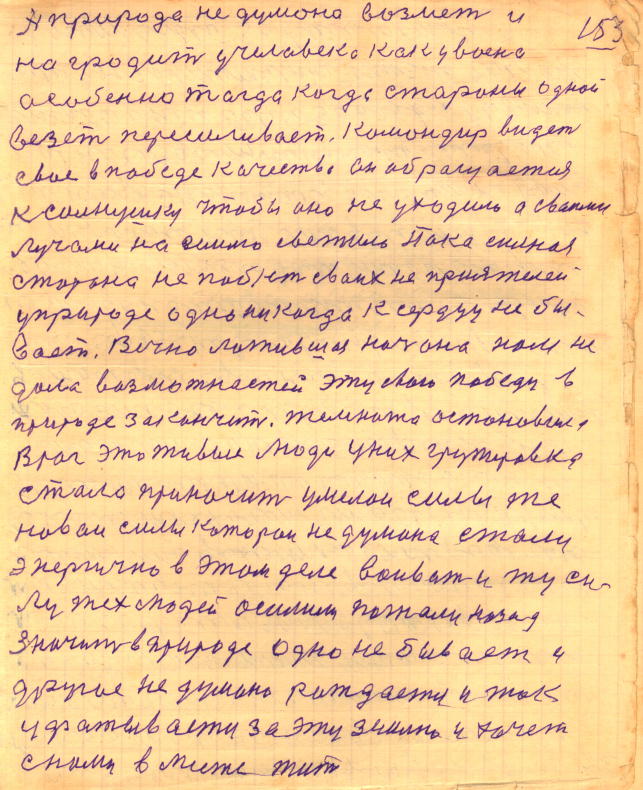 153
А природа не думона возмет и
на гродит у человека как у воена
особенно тагда когда стороны одной
везет пересиливает. Командир видет
свое в победе качество он обращуается
к солнушку чтобы оно не уходило а своими
лучами на светило Пока силная
сторона не побют своих не приятелей
у природе одно никогда к сердцу не бы-
вает. Вечно ложившая ноч она нам не
дала возможностей эту свою победу в
природе закончит. темнота остоновила
Враг это живые люди у них групировка
стала приночит умелои силы те
новаи силы которои не думона стали
энергично в этом деле воиват и ту си-
лу тех людей осилили погнали назад
Значит в природе одно не бывает и
другое не думоно рождается и так
ухватывается за эту землю и хочет
снами в месте жит